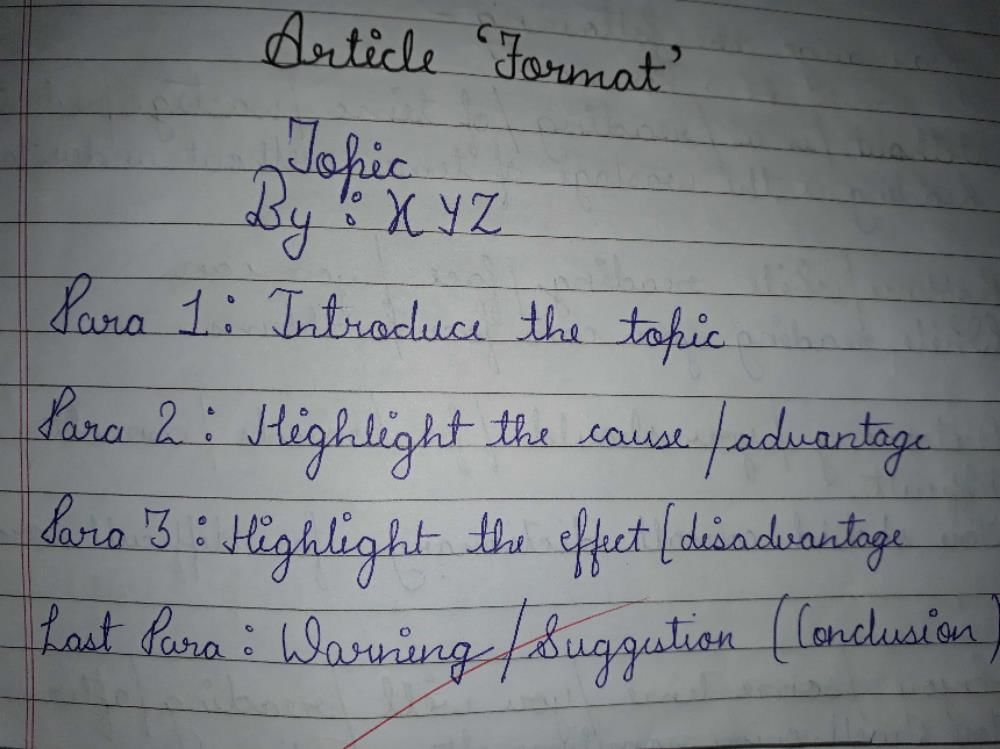 Article 'Format'
Topic
By : XYZ
Para 1 : Introduce the topic
Para 2 : Highlight the cause / advantage
Para 3 : Highlight the effect / disadvantage
Last Para : Warning / Suggestion (Conclusion)